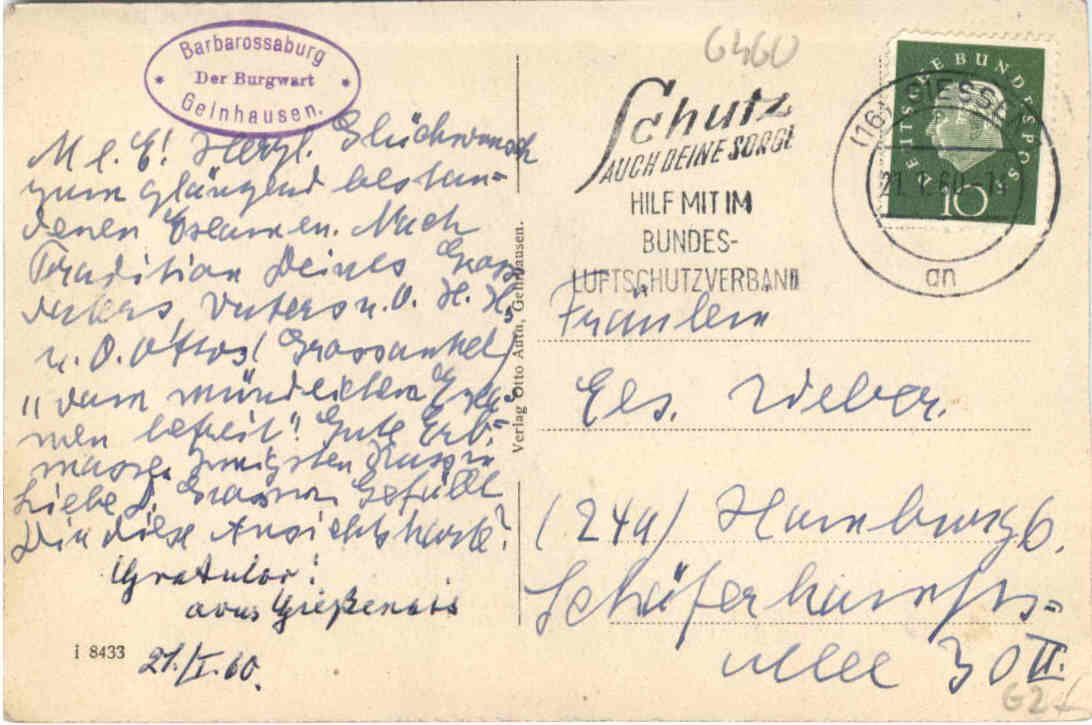 Barbarossaburg
Der Burgwart
Gelnhausen.
M l. E! Herzl. Glückwunsch
zum glänzend bestan-
denen Examen. Nach
Tradition Deines Gross
vaters, Vaters u. O. H. H.,
u. O. Ottos (Grossonkel)
"vom mündlichen Exa-
men befreit". Gute Erb-
masse. Innigsten
Liebe Gefällt
Dir diese Ansichtskarte?
Gratulor!
avus Gießensis
21./I. 60.
i 8433
Verlag Otto Auth, Gelnhausen.
6460
Schutz
AUCH DEINE SORGE
HILF MIT IM
BUNDES-
LUFTSCHUTZVERBAND
(16) GIESSEN
21.1.60
an
DEUTSCHE BUNDESPOST
10
Fräulein
Els. Weber.
(24a) Hamburg 6.
Schäferkamps-
allee 30 II.
62